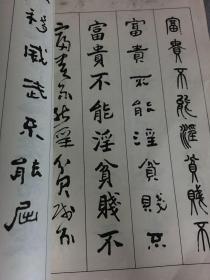 富貴不能淫貧賤不
富貴不能淫貧賤不
富貴不能淫貧賤不
富貴不能淫貧賤不
移威武不能屈